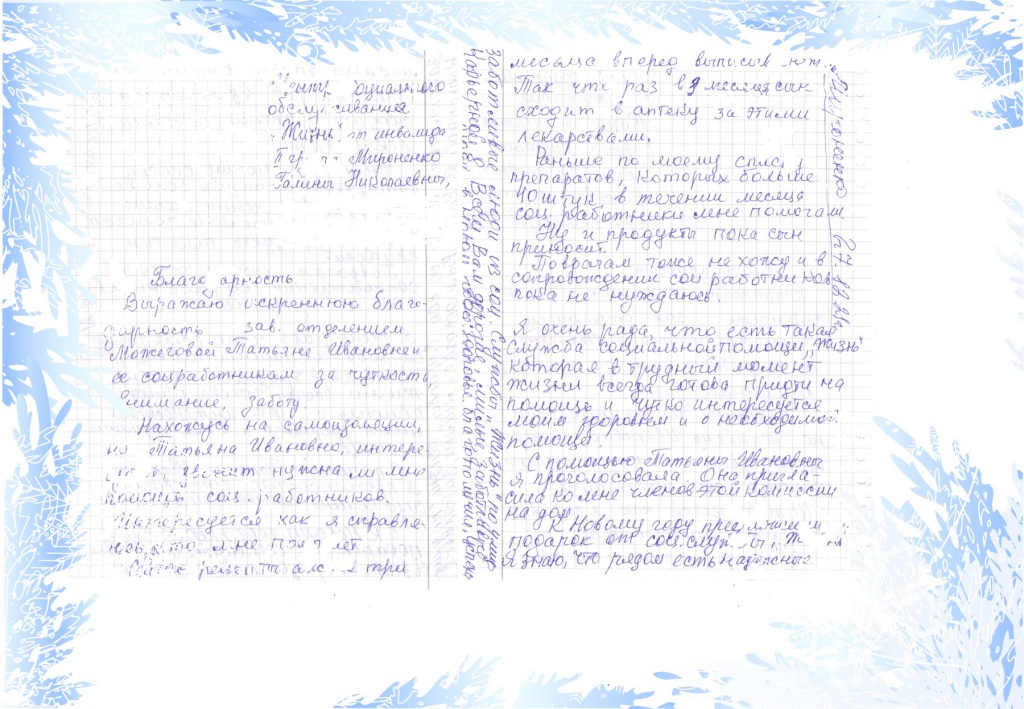 Центр социального
обслуживания
"Жизнь" от инвалида
II гр. Мироненко
Галины Николаевны,
Благодарность
Выражаю искреннюю благо-
дарность зав. отделением
Можеговой Татьяне Ивановне и
ее соцработникам за чуткость,
внимание, заботу
Нахожусь на самоизоляции,
но Татьяна Ивановна, интере-
нужна ли мне
помощь соц. работников.
Интересуется как я справля-
юсь, кто мне
Сейчас рецепты три
месяца вперед выписыв
Так что раз в 3 месяца сын
сходит в аптеку за этими
лекарствами.
Раньше по моему списку
препаратов, которых больше
10 штук в течении месяца
соц. работники мне помогали
Ну и продукты пока сын
приносит.
По врачам тоже не хожу и в
сопровождении соц работников
пока не нуждаюсь.
Я очень рада, что есть такая
служба социальной помощи, "Жизнь"
которая в трудный момент
жизни всегда готова придти на
помощь и чутко интересуется
моим здоровьем и о необходимой
помощи.
С помощью Татьяны Ивановны
я проголосовала. Она пригла-
сила ко мне членов этой комиссии
на дом
К Новому году
подарок от соц службы,
Я знаю, что рядом есть надежные
заботливые люди из соц. службы "Жизнь"
Всем Вам дорогие, милые, заботливые
здоровья, благополучия,
Мироненко